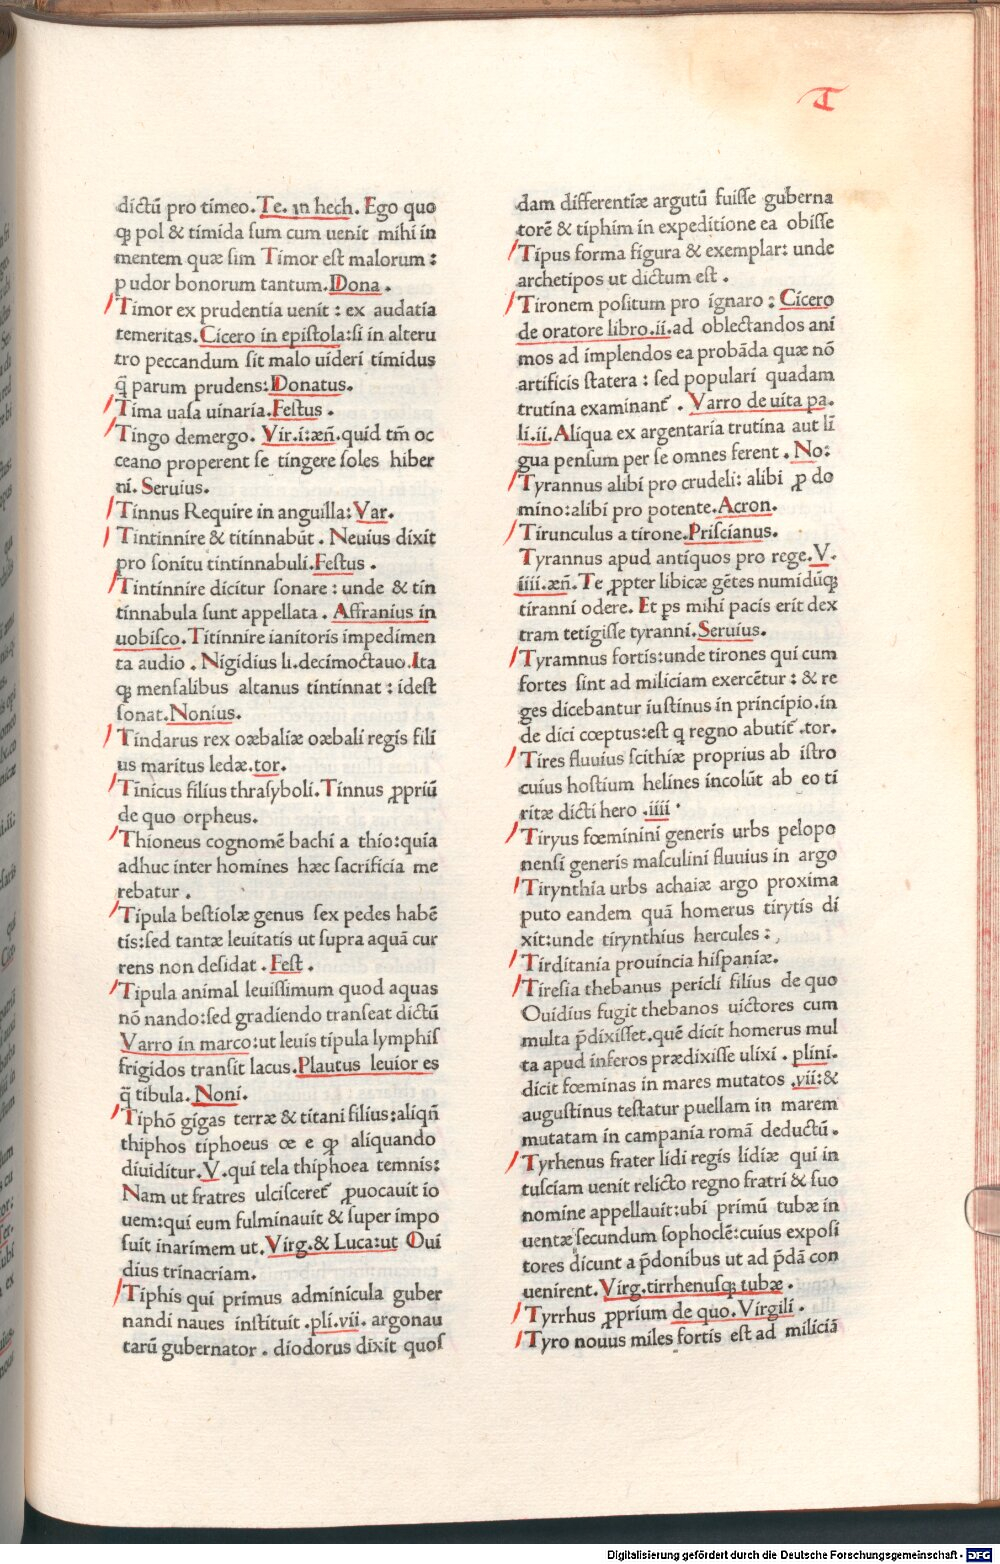 T
dictū pro timeo. Te. in hech. Ego quo
qꝫ pol & timida sum cum uenit mihi in
mentem quæ sim Timor est malorum :
pudor bonorum tantum. Dona .
Timor ex prudentia uenit : ex audatia
temeritas. Cicero in epistola: si in alteru
tro peccandum sit malo uideri timidus
q̄ parum prudens: Donatus.
Tima uasa uinaria. Festus .
Tingo demergo. Vir. i: æn̄. quid tm̄ oc
ceano properent se tingere soles hiber
ni. Seruius.
Tinnus Require in anguilla: Var.
Tintinnire & titinnabūt . Neuius dixit
pro sonitu tintinnabuli. Festus .
Tintinnire dicitur sonare : unde & tin
tinnabula sunt appellata . Affranius in
uobisco. Titinnire ianitoris impedimen
ta audio . Nigidius li. decimoctauo. Ita
qꝫ mensalibus altanus tintinnat : idest
sonat. Nonius.
Tindarus rex oæbaliæ oæbali regis fili
us maritus ledæ. tor.
Tinicus filius thrasyboli. Tinnus ꝓpriū
de quo orpheus.
Thioneus cognomē bachi a thio: quia
adhuc inter homines hæc sacrificia me
rebatur .
Tipula bestiolæ genus sex pedes habē
tis: sed tantæ leuitatis ut supra aquā cur
rens non desidat . Fest .
Tipula animal leuissimum quod aquas
nō nando: sed gradiendo transeat dictū
Varro in marco: ut leuis tipula lymphis
frigidos transit lacus. Plautus leuior es
q̄ tibula. Noni.
Tiphō gigas terræ & titani filius: aliqn̄
thiphos tiphoeus œ e qꝫ aliquando
diuiditur. V. qui tela thiphoea temnis:
Nam ut fratres ulcisceret̃ ꝓuocauit io
uem: qui eum fulminauit & super impo
suit inarimem ut. Virg. & Luca: ut Oui
dius trinacriam.
Tiphis qui primus adminicula guber
nandi naues instituit . pli. vii. argonau
tarū gubernator . diodorus dixit quos
dam differentiæ argutū fuisse guberna
torē & tiphim in expeditione ea obisse
Tipus forma figura & exemplar: unde
archetipos ut dictum est .
Tironem positum pro ignaro : Cicero
de oratore libro. ii. ad oblectandos ani
mos ad implendos ea probāda quæ nō
artificis statera : sed populari quadam
trutina examinant̃ . Varro de uita pa.
li. ii. Aliqua ex argentaria trutina aut lī
gua pensum per se omnes ferent . No:
Tyrannus alibi pro crudeli: alibi ꝓ do
mino: alibi pro potente. Acron.
Tirunculus a tirone. Priscianus.
Tyrannus apud antiquos pro rege. V.
iiii. æn̄. Te ꝓpter libicæ gētes numidūqꝫ
tiranni odere. Et ps mihi pacis erit dex
tram tetigisse tyranni. Seruius.
Tyramnus fortis: unde tirones qui cum
fortes sint ad miliciam exercētur : & re
ges dicebantur iustinus in principio. in
de dici cœptus: est q regno abutit̃ . tor.
Tires fluuius scithiæ proprius ab istro
cuius hostium helines incolūt ab eo ti
ritæ dicti hero . iiii .
Tiryus fœminini generis urbs pelopo
nensi generis masculini fluuius in argo
Tirynthia urbs achaiæ argo proxima
puto eandem quā homerus tirytis di
xit: unde tirynthius hercules : ,
Tirditania prouincia hispaniæ.
Tiresia thebanus pericli filius de quo
Ouidius fugit thebanos uictores cum
multa p̄dixisset. quē dicit homerus mul
ta apud inferos prædixisse ulixi . plini.
dicit fœminas in mares mutatos . vii: &
augustinus testatur puellam in marem
mutatam in campania romā deductū .
Tyrhenus frater lidi regis lidiæ qui in
tusciam uenit relicto regno fratri & suo
nomine appellauit: ubi primū tubæ in
uentæ secundum sophoclē: cuius exposi
tores dicunt a p̄donibus ut ad p̄dā con
uenirent. Virg. tirrhenusqꝫ tubæ .
Tyrrhus ꝓprium de quo. Virgili .
Tyro nouus miles fortis est ad miliciā
Digitalisierung gefördert durch die Deutsche Forschungsgemeinschaft - DFG